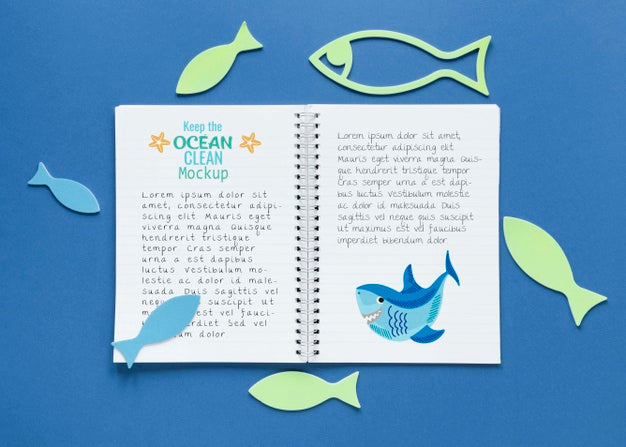 Keep the
OCEAN
CLEAN
Mockup
Lorem ipsum dolor sit
amet, consectetur adipi-
scing elit. Mauris a
magna mattis. Quisque
hendrerit tristique
tempor. Cras semper
a est dapibus aliquam
erat. Vestibulum mo-
lestie ac diam male-
suada. Duis sagittis vel
neque quis suscipit
m est vel fauci-
erdiet. Sed varius
um dolor.
Lorem ipsum dolor sit amet, consectetur
adipiscing elit. Mauris a magna mattis. Quis-
que hendrerit tristique tempor. Cras semper
a est dapibus aliquam erat. Vestibulum mo-
lestie ac diam malesuada. Duis
sagittis vel neque quis suscipit
maximus est vel faucibus
imperdiet bibendum dolor.